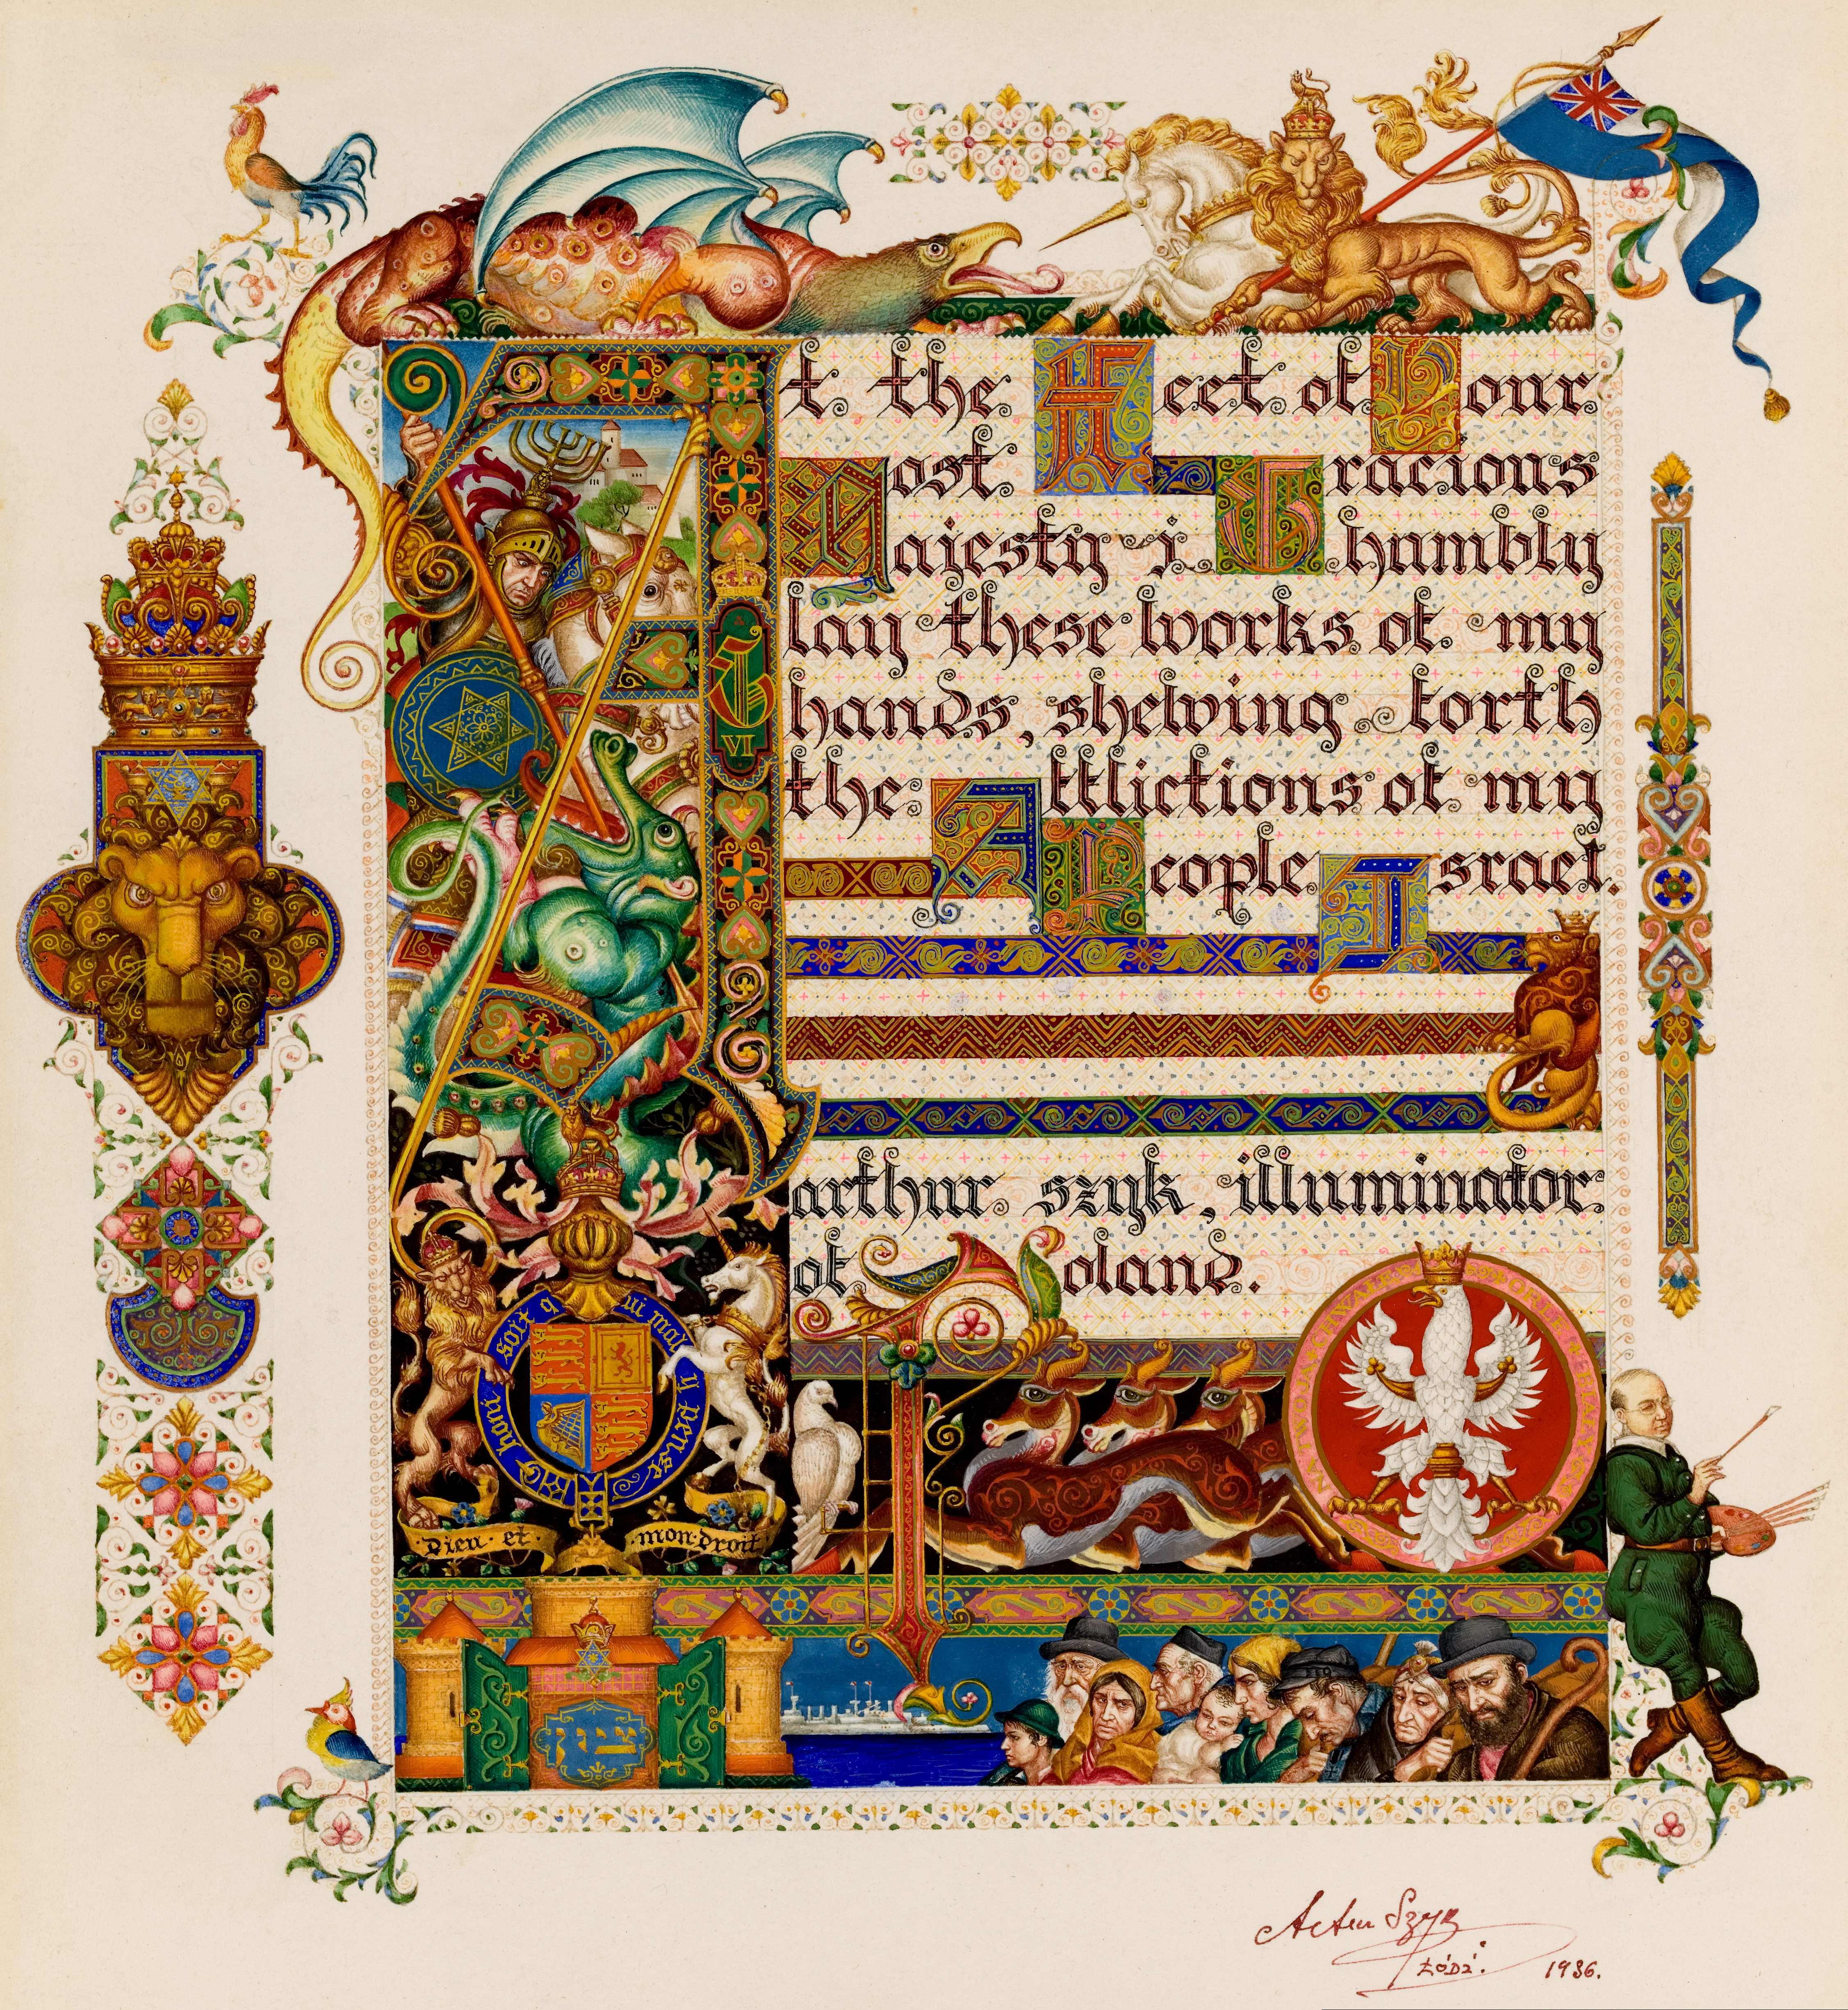 At the Feet of Your
Most Gracious
Majesty i humbly
lay these works of my
hands, shewing forth
the Afflictions of my
People Israel.
arthur szyk, illuminator
of Poland.
G
VI
honi soit qui mal y pense
Dieu et mon droit
ציון
Łódź. 1936.